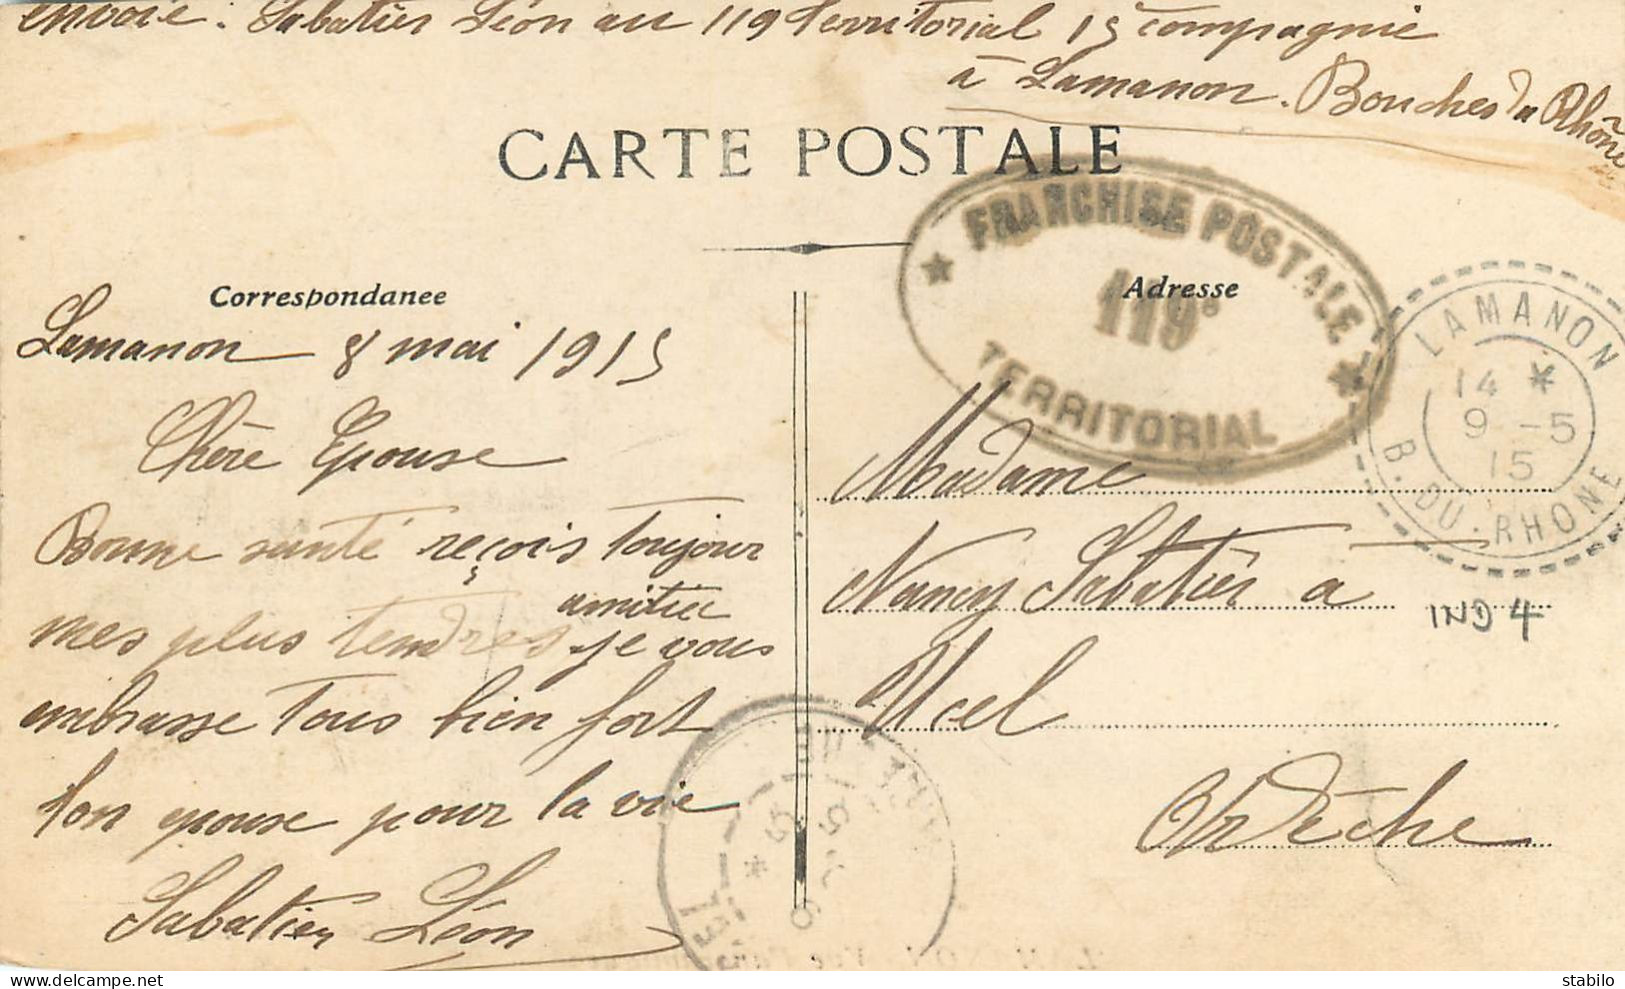 envoie : Sabatier Léon au 119 Territorial 15 compagnie
à Lamanon. Bouches du Rhône
CARTE POSTALE
FRANCHISE POSTALE
119e
TERRITORIAL
Correspondance
Adresse
LAMANON
14 *
9 -5
15
B. DU. RHONE
Lamanon 8 mai 1915
Chère Epouse
Bonne santé reçois toujour
mes plus tendres amitier je vous
embrasse tous bien fort
ton epouse pour la vie
Sabatier Léon
Madame
Nancy Sabatièr a
Ucel
Ardèche
IND 4